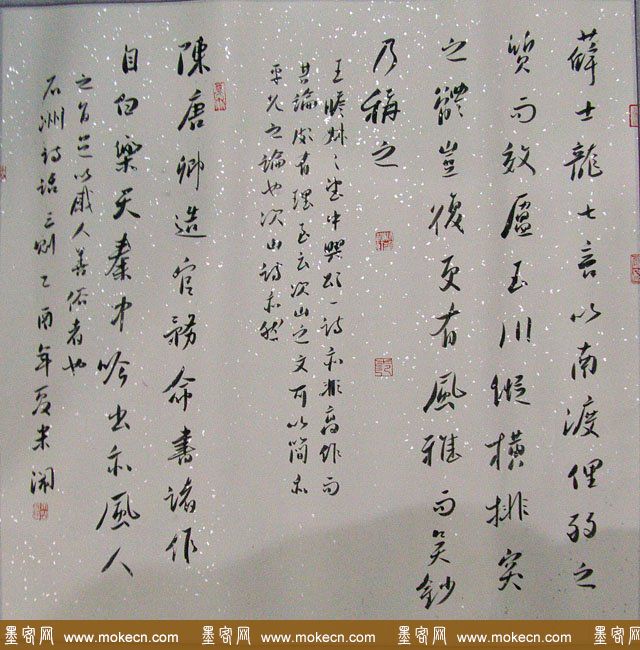 薛士龍七言以南渡俚弱之
質而效盧玉川縱橫排突
之體豈復更有風雅而吳鈔
乃稱之
王瞻叔之望中興頌一詩亦非高作而
其論頗有理至云次山之文可以簡
平允之論也次山詩亦然
陳唐卿造官務命書諸作
自白樂天秦中吟出亦風人
之旨足以感人善俗者也
石洲詩話三則乙酉年夏
墨客网 www.mokecn.com 墨客网 www.mokecn.com 墨客网 www.mokecn.com